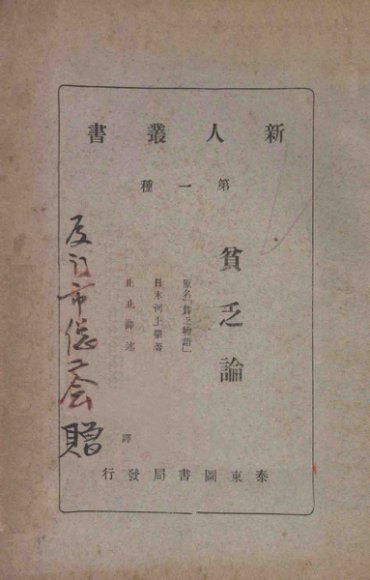 新人叢書
第一種
貧乏論
原名「貧乏物語」
日本河上肇著
止止譯述
泰東圖書局發行
譯
厦门市總工会贈